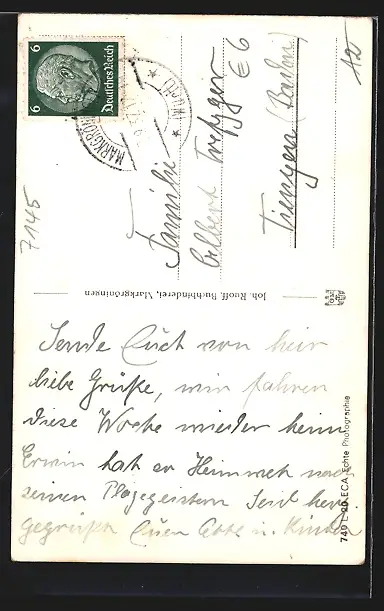 6 6
Deutsches Reich
MARKGRÖN
7145
120
Familie
Albert Trefzger
E6
Tiengen (Baden)
Joh. Ruoff, Buchbinderei, Markgröningen
Sende Euch von hier
liebe Grüße, wir fahren
diese Woche wieder heim
Erwin hat so Heimweh nach
seinen Plagegeistern Seid herzl.
gegrüßt Euer u. Kinder
749 L 20 ECA, Echte Photographie